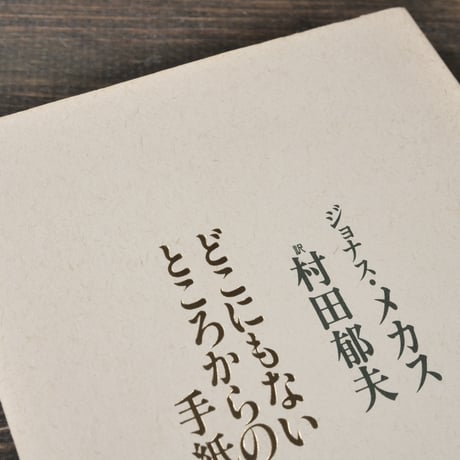 ジョナス・メカス
訳 村田郁夫
どこにもない
ところからの
手紙